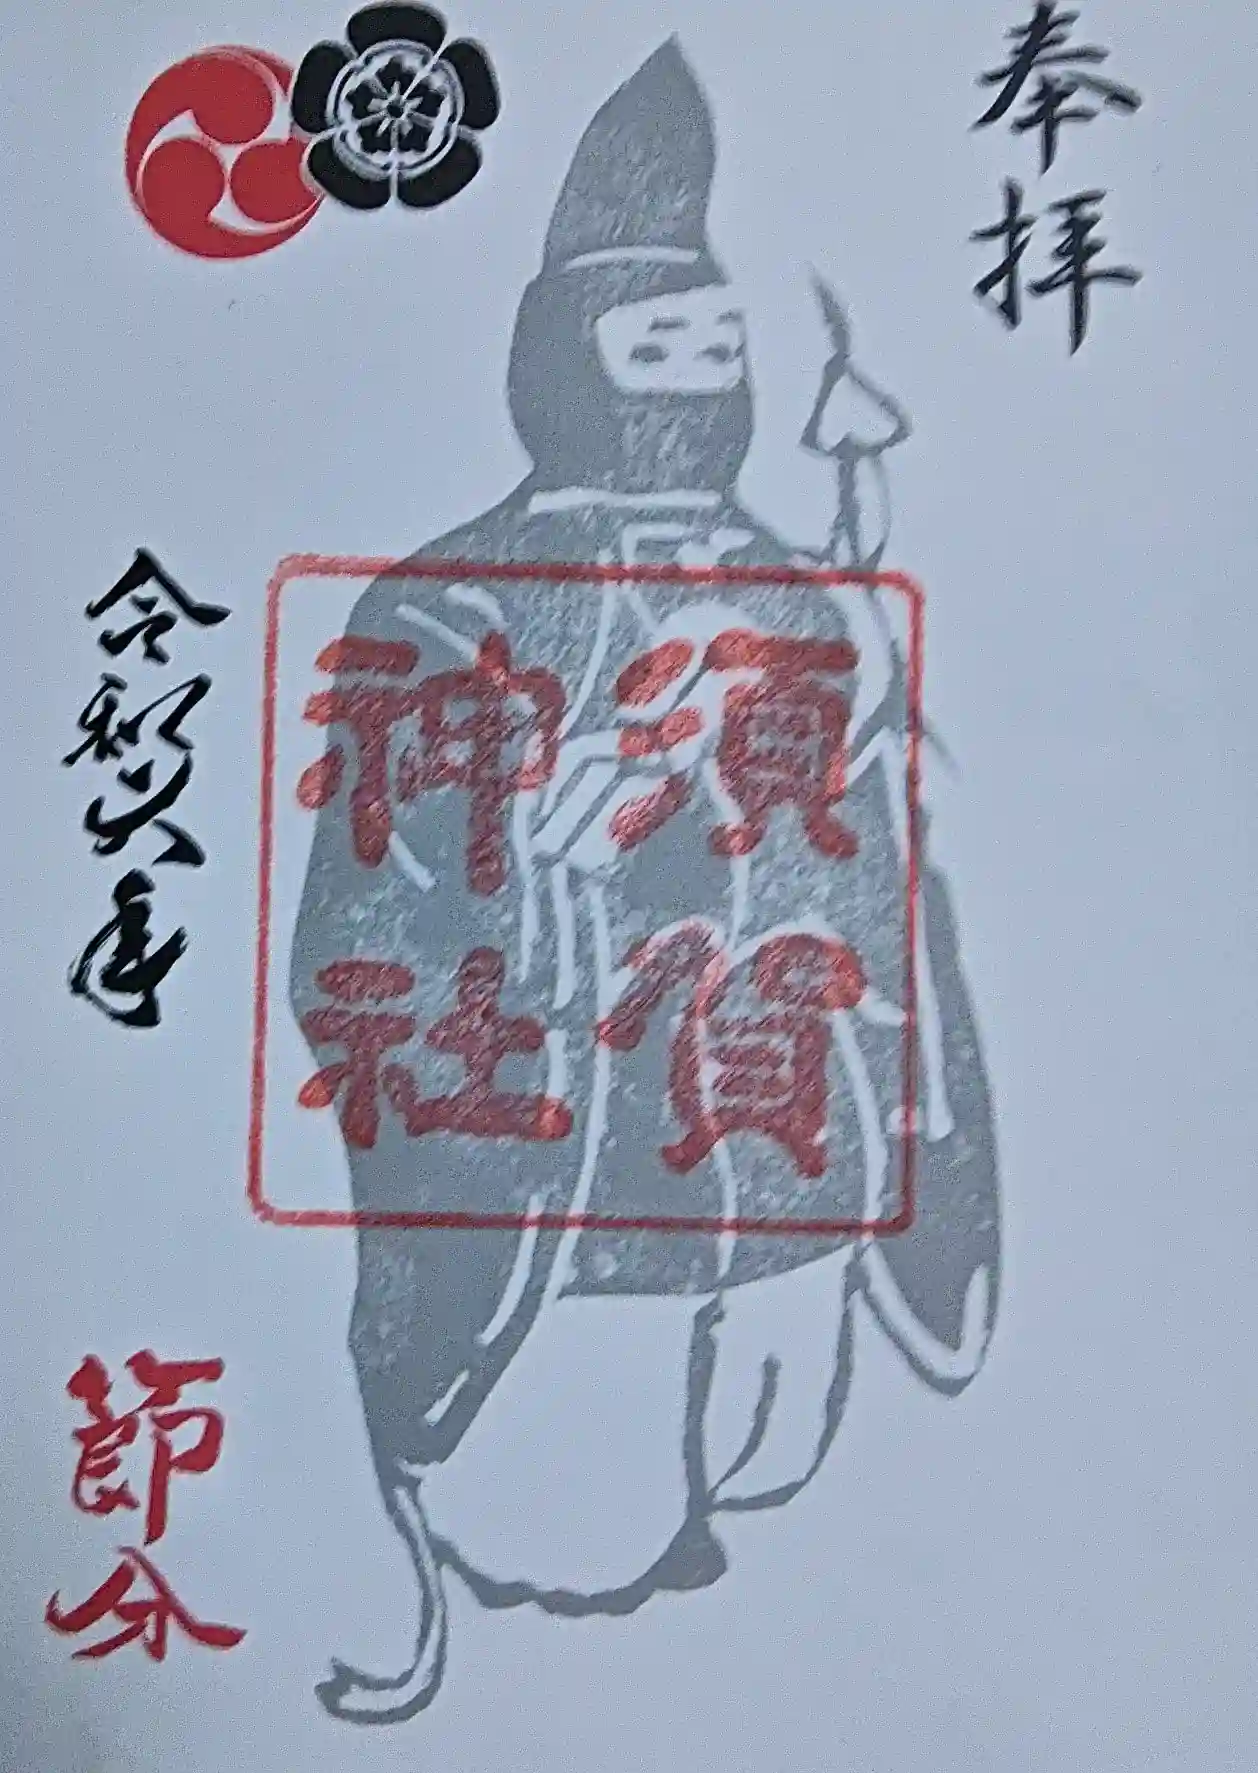 奉拝
須賀
神社
令和六年
節分